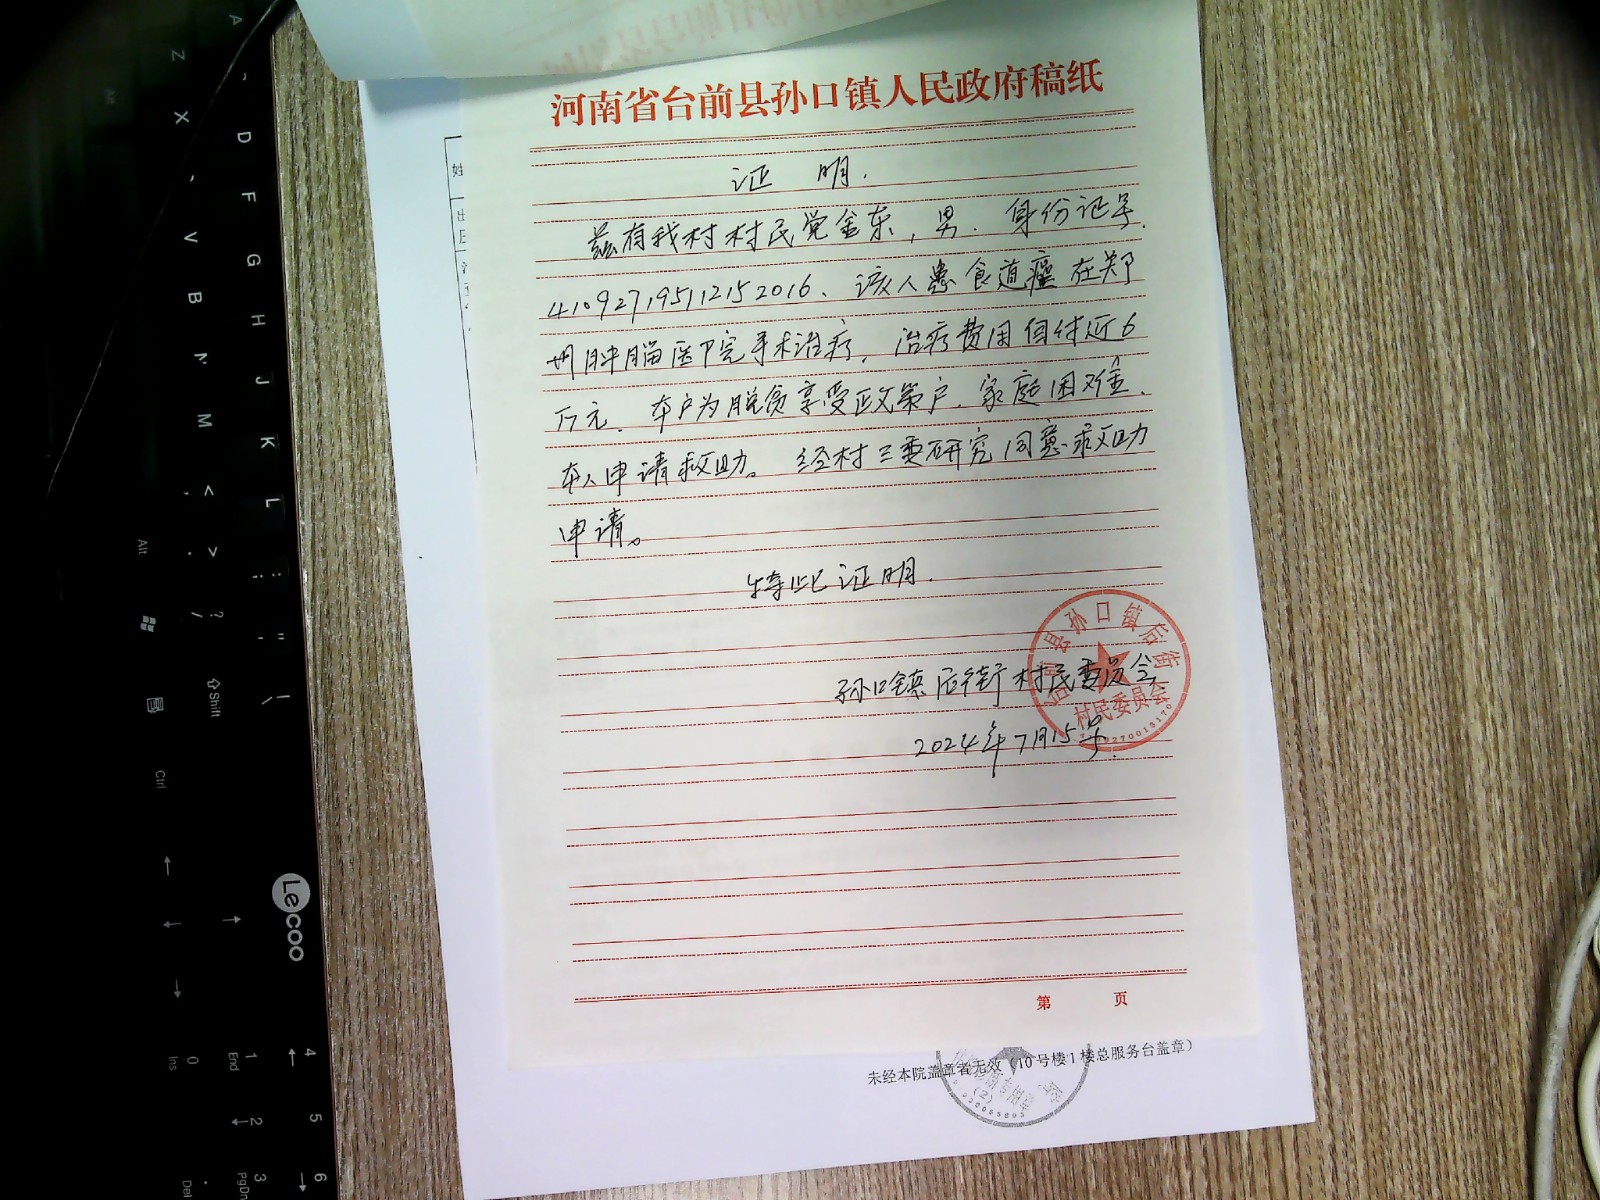 河南省台前县孙口镇人民政府稿纸
证 明.
兹有我村村民党金东,男.身份证号
410927195112152016、该人患食道癌在郑
州肿瘤医院手术治疗.治疗费用自付近6
万元.本户为脱贫享受政策户.家庭困难.
本人申请救助。经村三委研究同意救助
申请。
特此证明.
孙口镇后街村民委员会
2024年7月15号
台前县孙口镇后街
村民委员会
第 页
未经本院盖章者无效(10号楼1楼总服务台盖章)
专用章
(2)
Lecoo
A
Z
X
D
F
V
G
B
H
N
J
M
K
L
<
>
?
Alt
Shift
Ctrl
Ins
0
End
1
4
2
5
3
PgDn
6
Del
姓
出